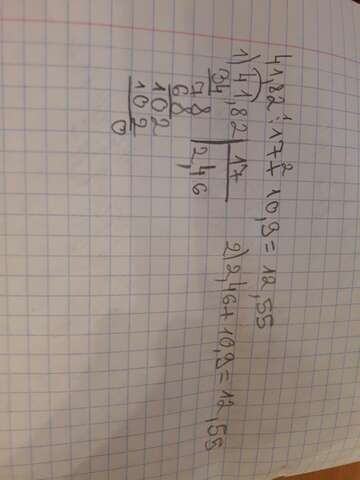 1 2
41,82 : 17 + 10,9 = 12,55
1) 41,82 | 17 2) 2,46 + 10,9 = 12,55
34 2,46
78
68
102
102
0